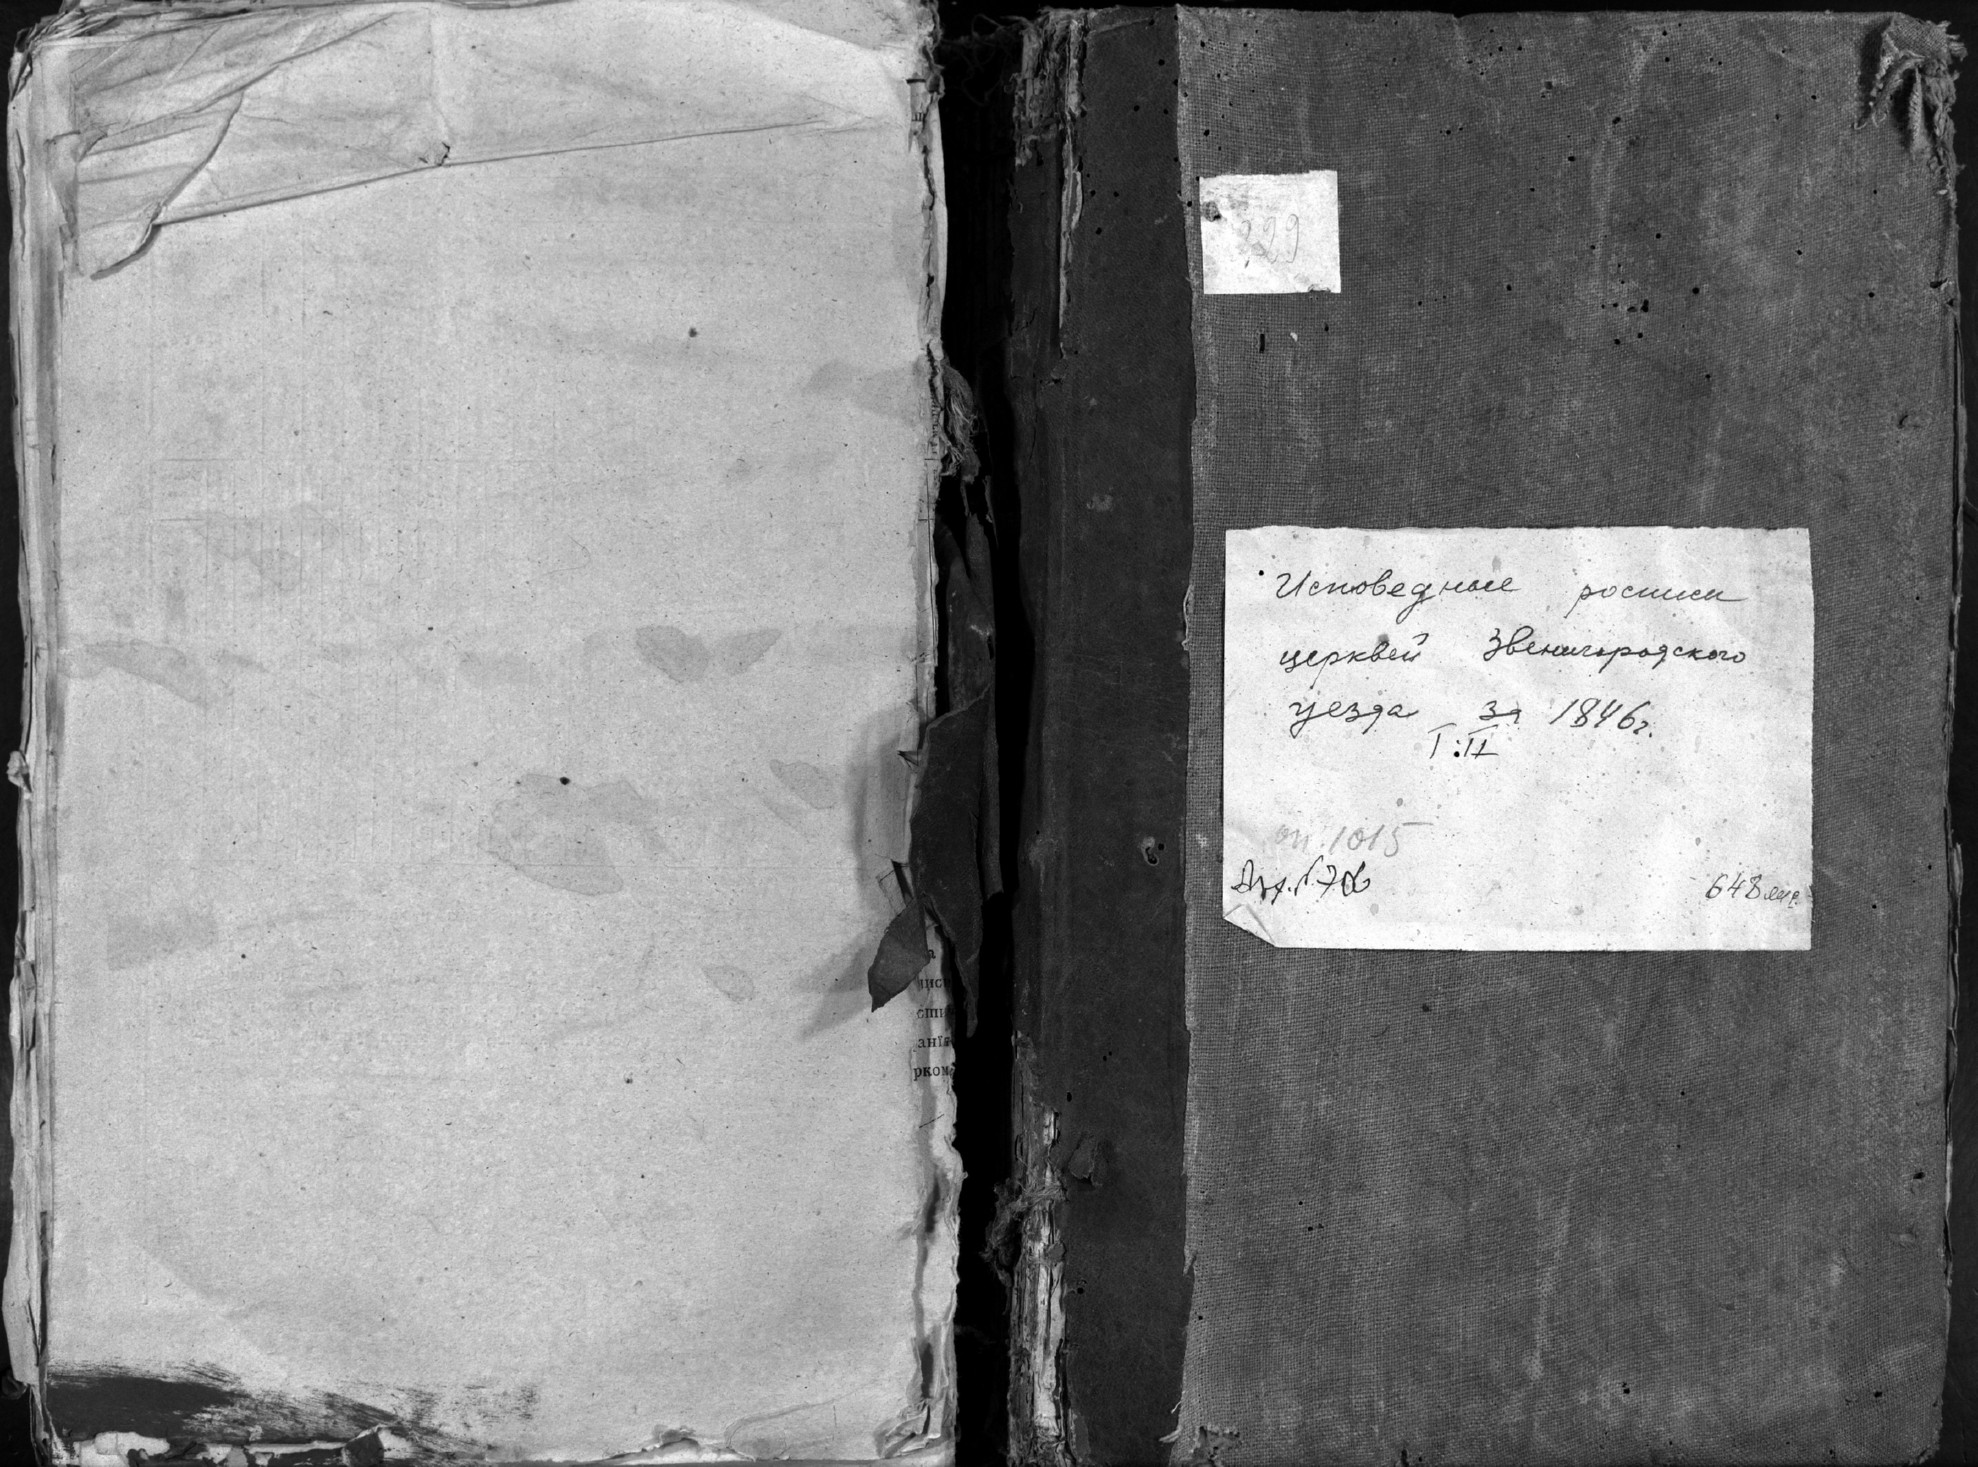 229
Исповедные росписи
церквей Звенигородского
уезда за 1846г.
I: II
оп. 1015
648 лис.
а
лис
сти
анїя
рком